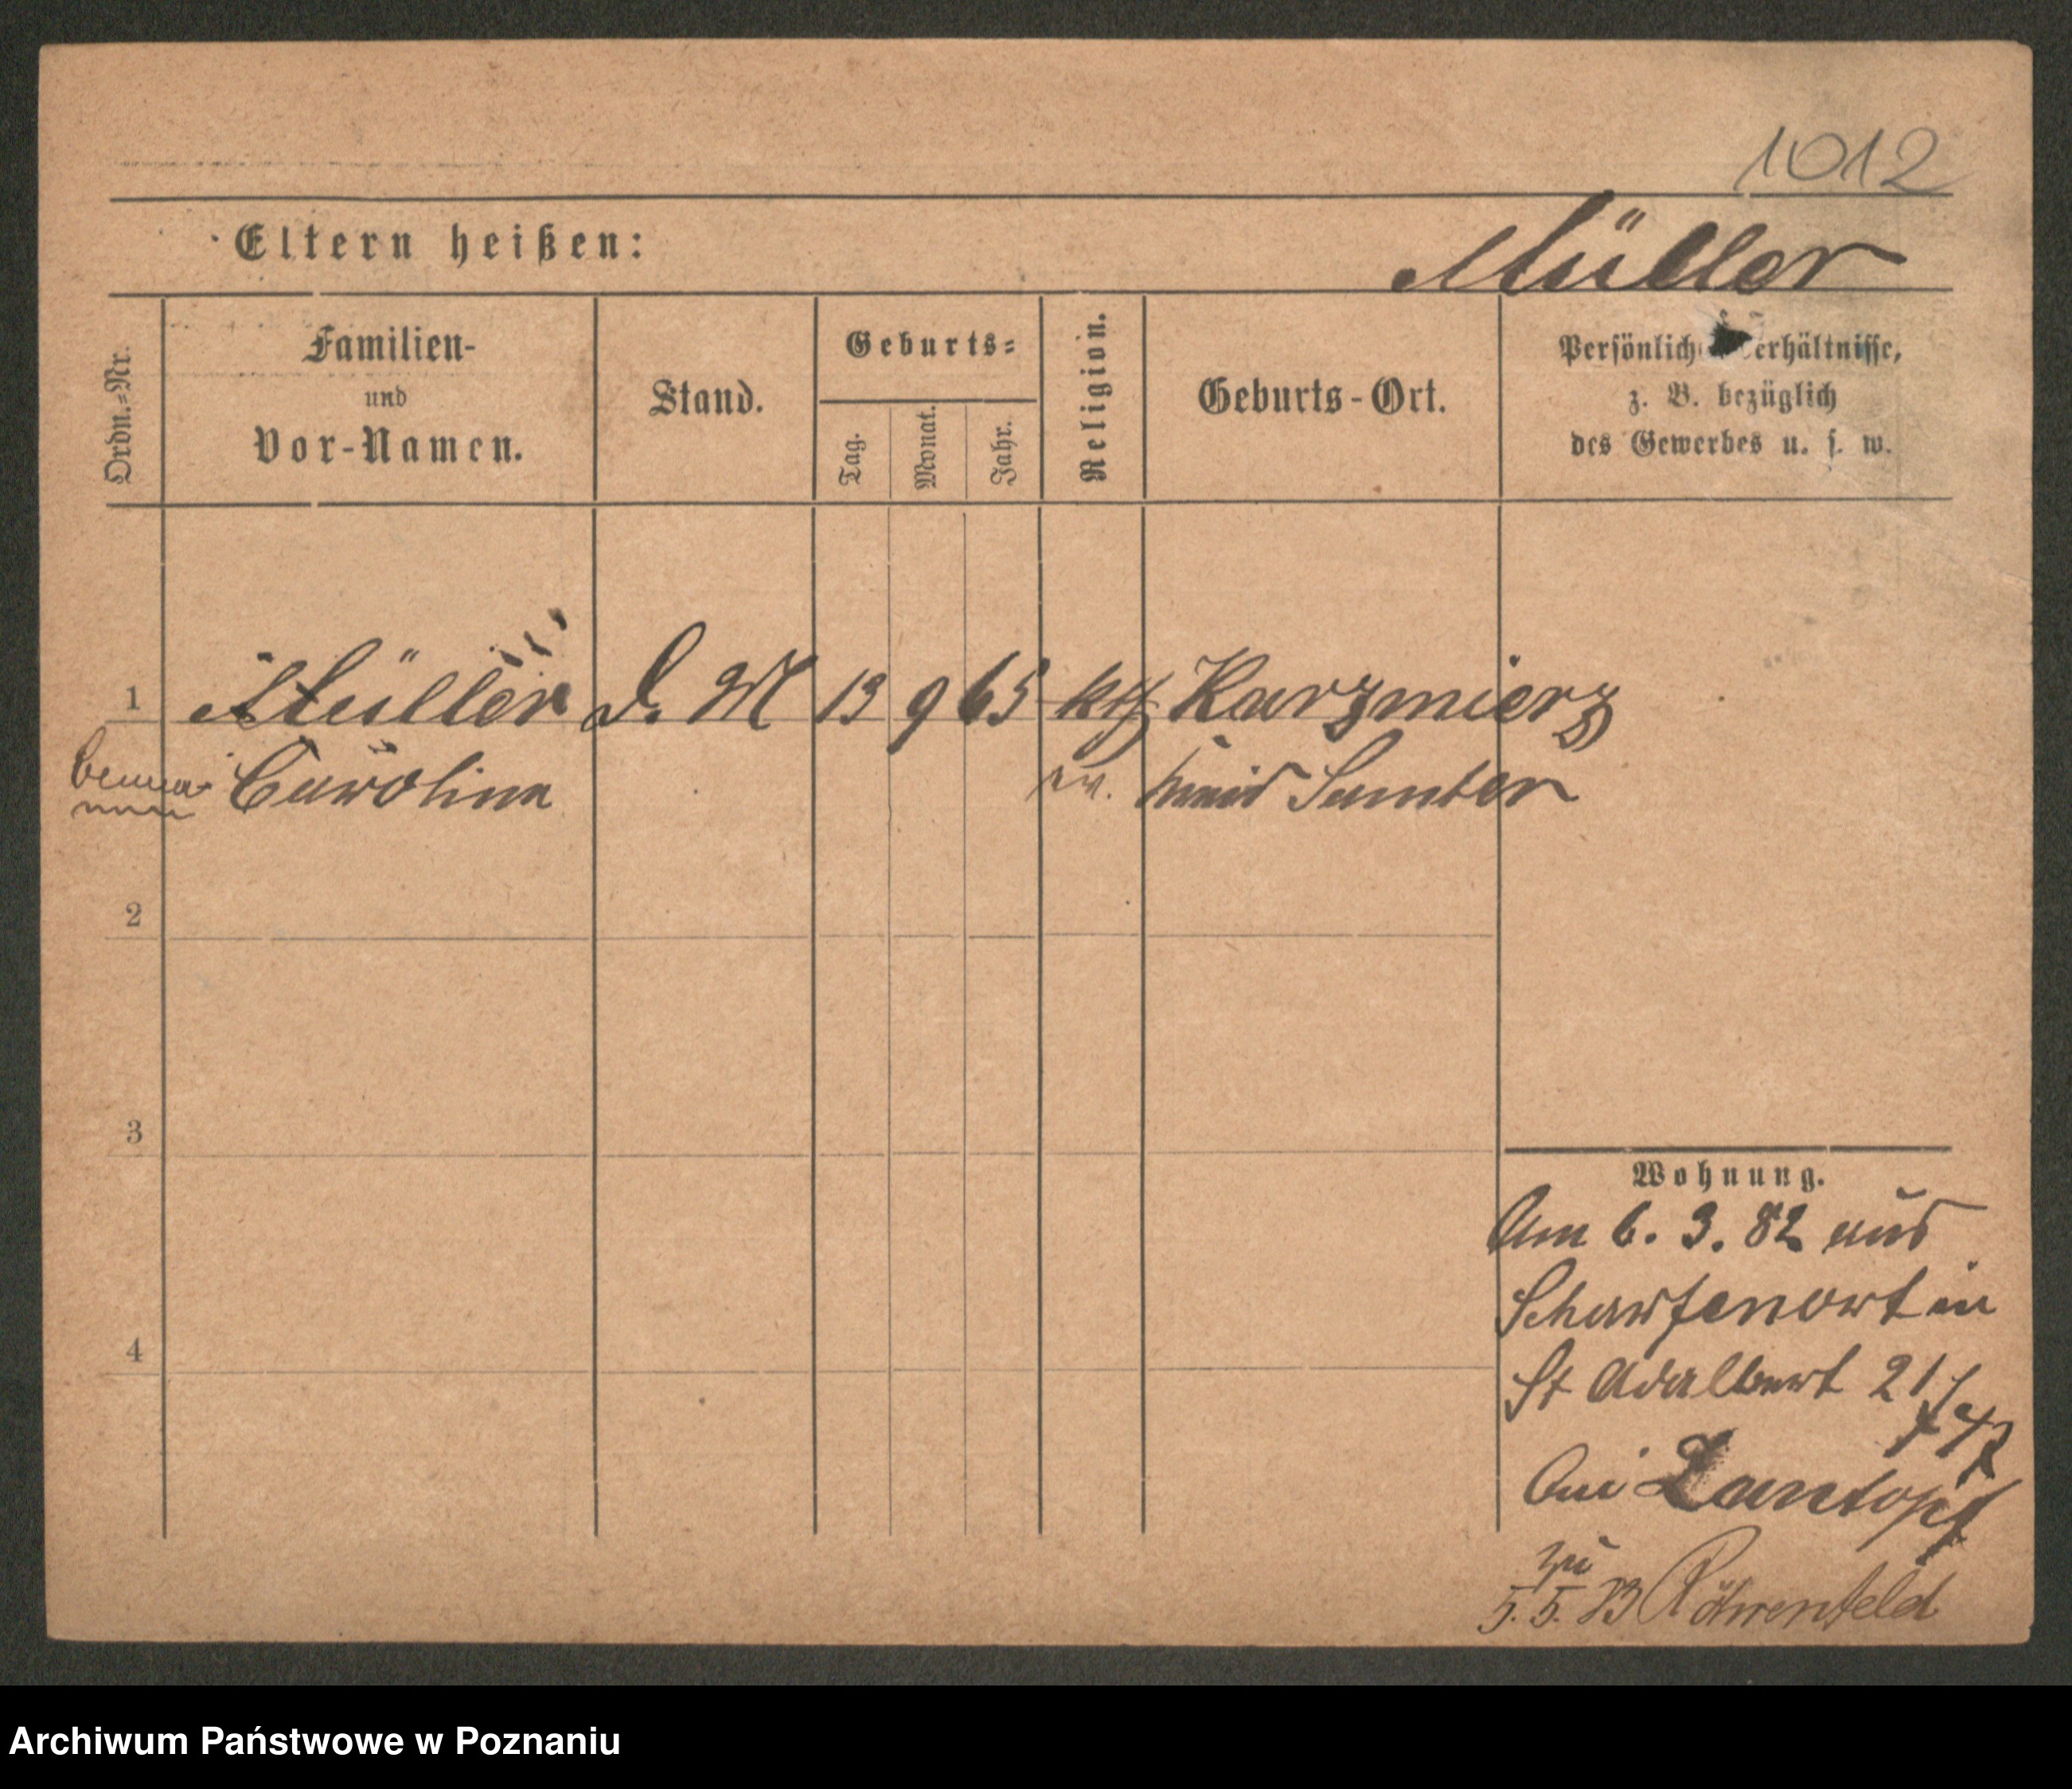 1012
Eltern heißen:
Müller
Ordn.-Nr.
Familien-
und
Vor-Namen.
Stand.
Geburts-
Tag.
Monat.
Jahr.
Religion.
Geburts-Ort.
Persönlich erhältnisse,
z. B. bezüglich
des Gewerbes u. s. w.
1 Müller D. M 13 9 65 kth Kazmierz
Carolina Samter
2
3
4
Wohnung.
Am 6. 3. 82 aus
Scharfenort in
St Adalbert 21
bei Zantopf
zu
5. 5. 83 Röhrenfeld
Archiwum Państwowe w Poznaniu